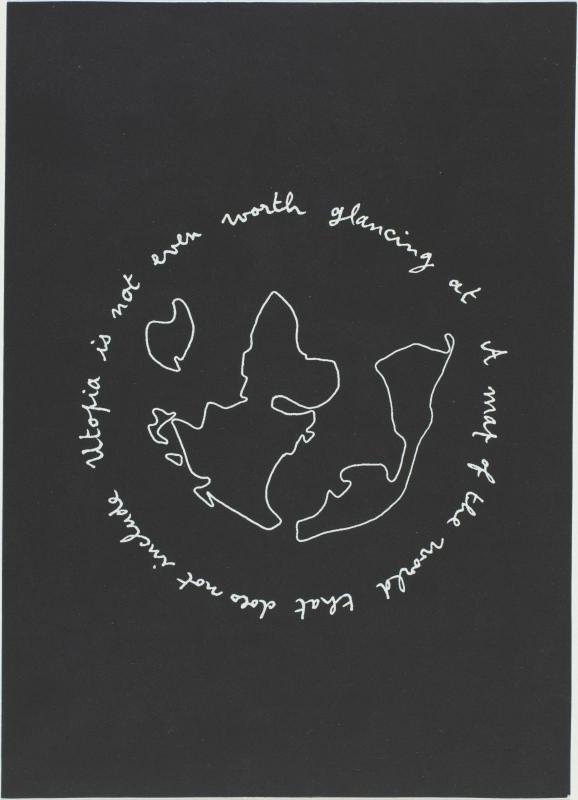 A map of the world that does not include Utopia is not even worth glancing at